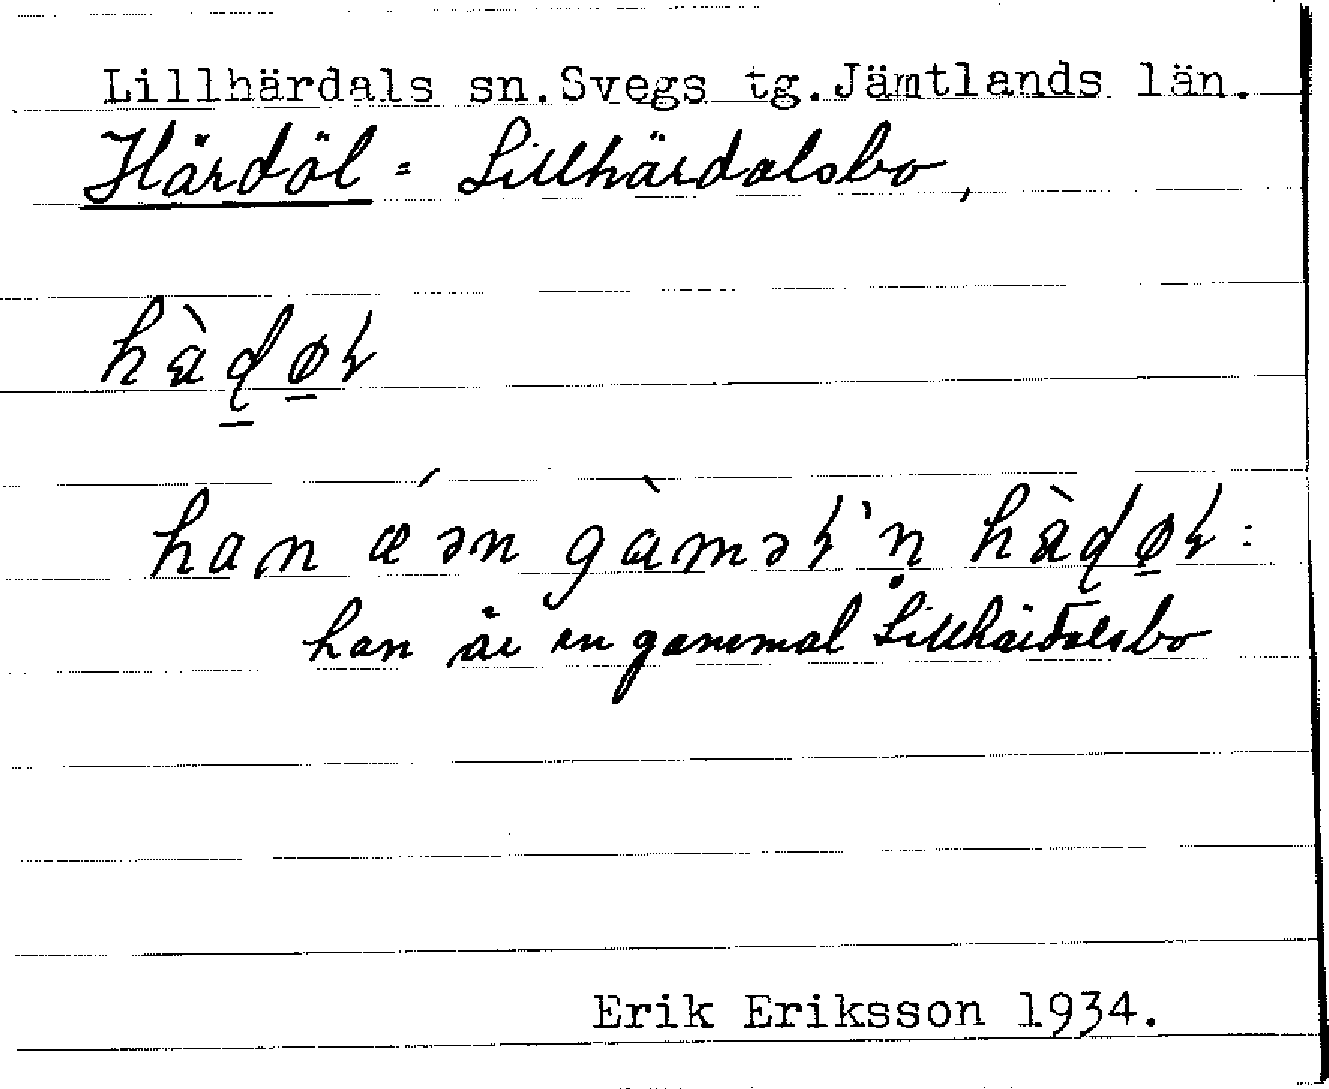 Lillhärdals sn. Svegs tg. Jämtlands län.
Härdöl = Lillhärdalsbo,
hàɖøɽ
han ǽ ən gàməɽ'ṇ hàɖøɽ:
han är en gammal Lillhärdalsbo
Erik Eriksson 1934.